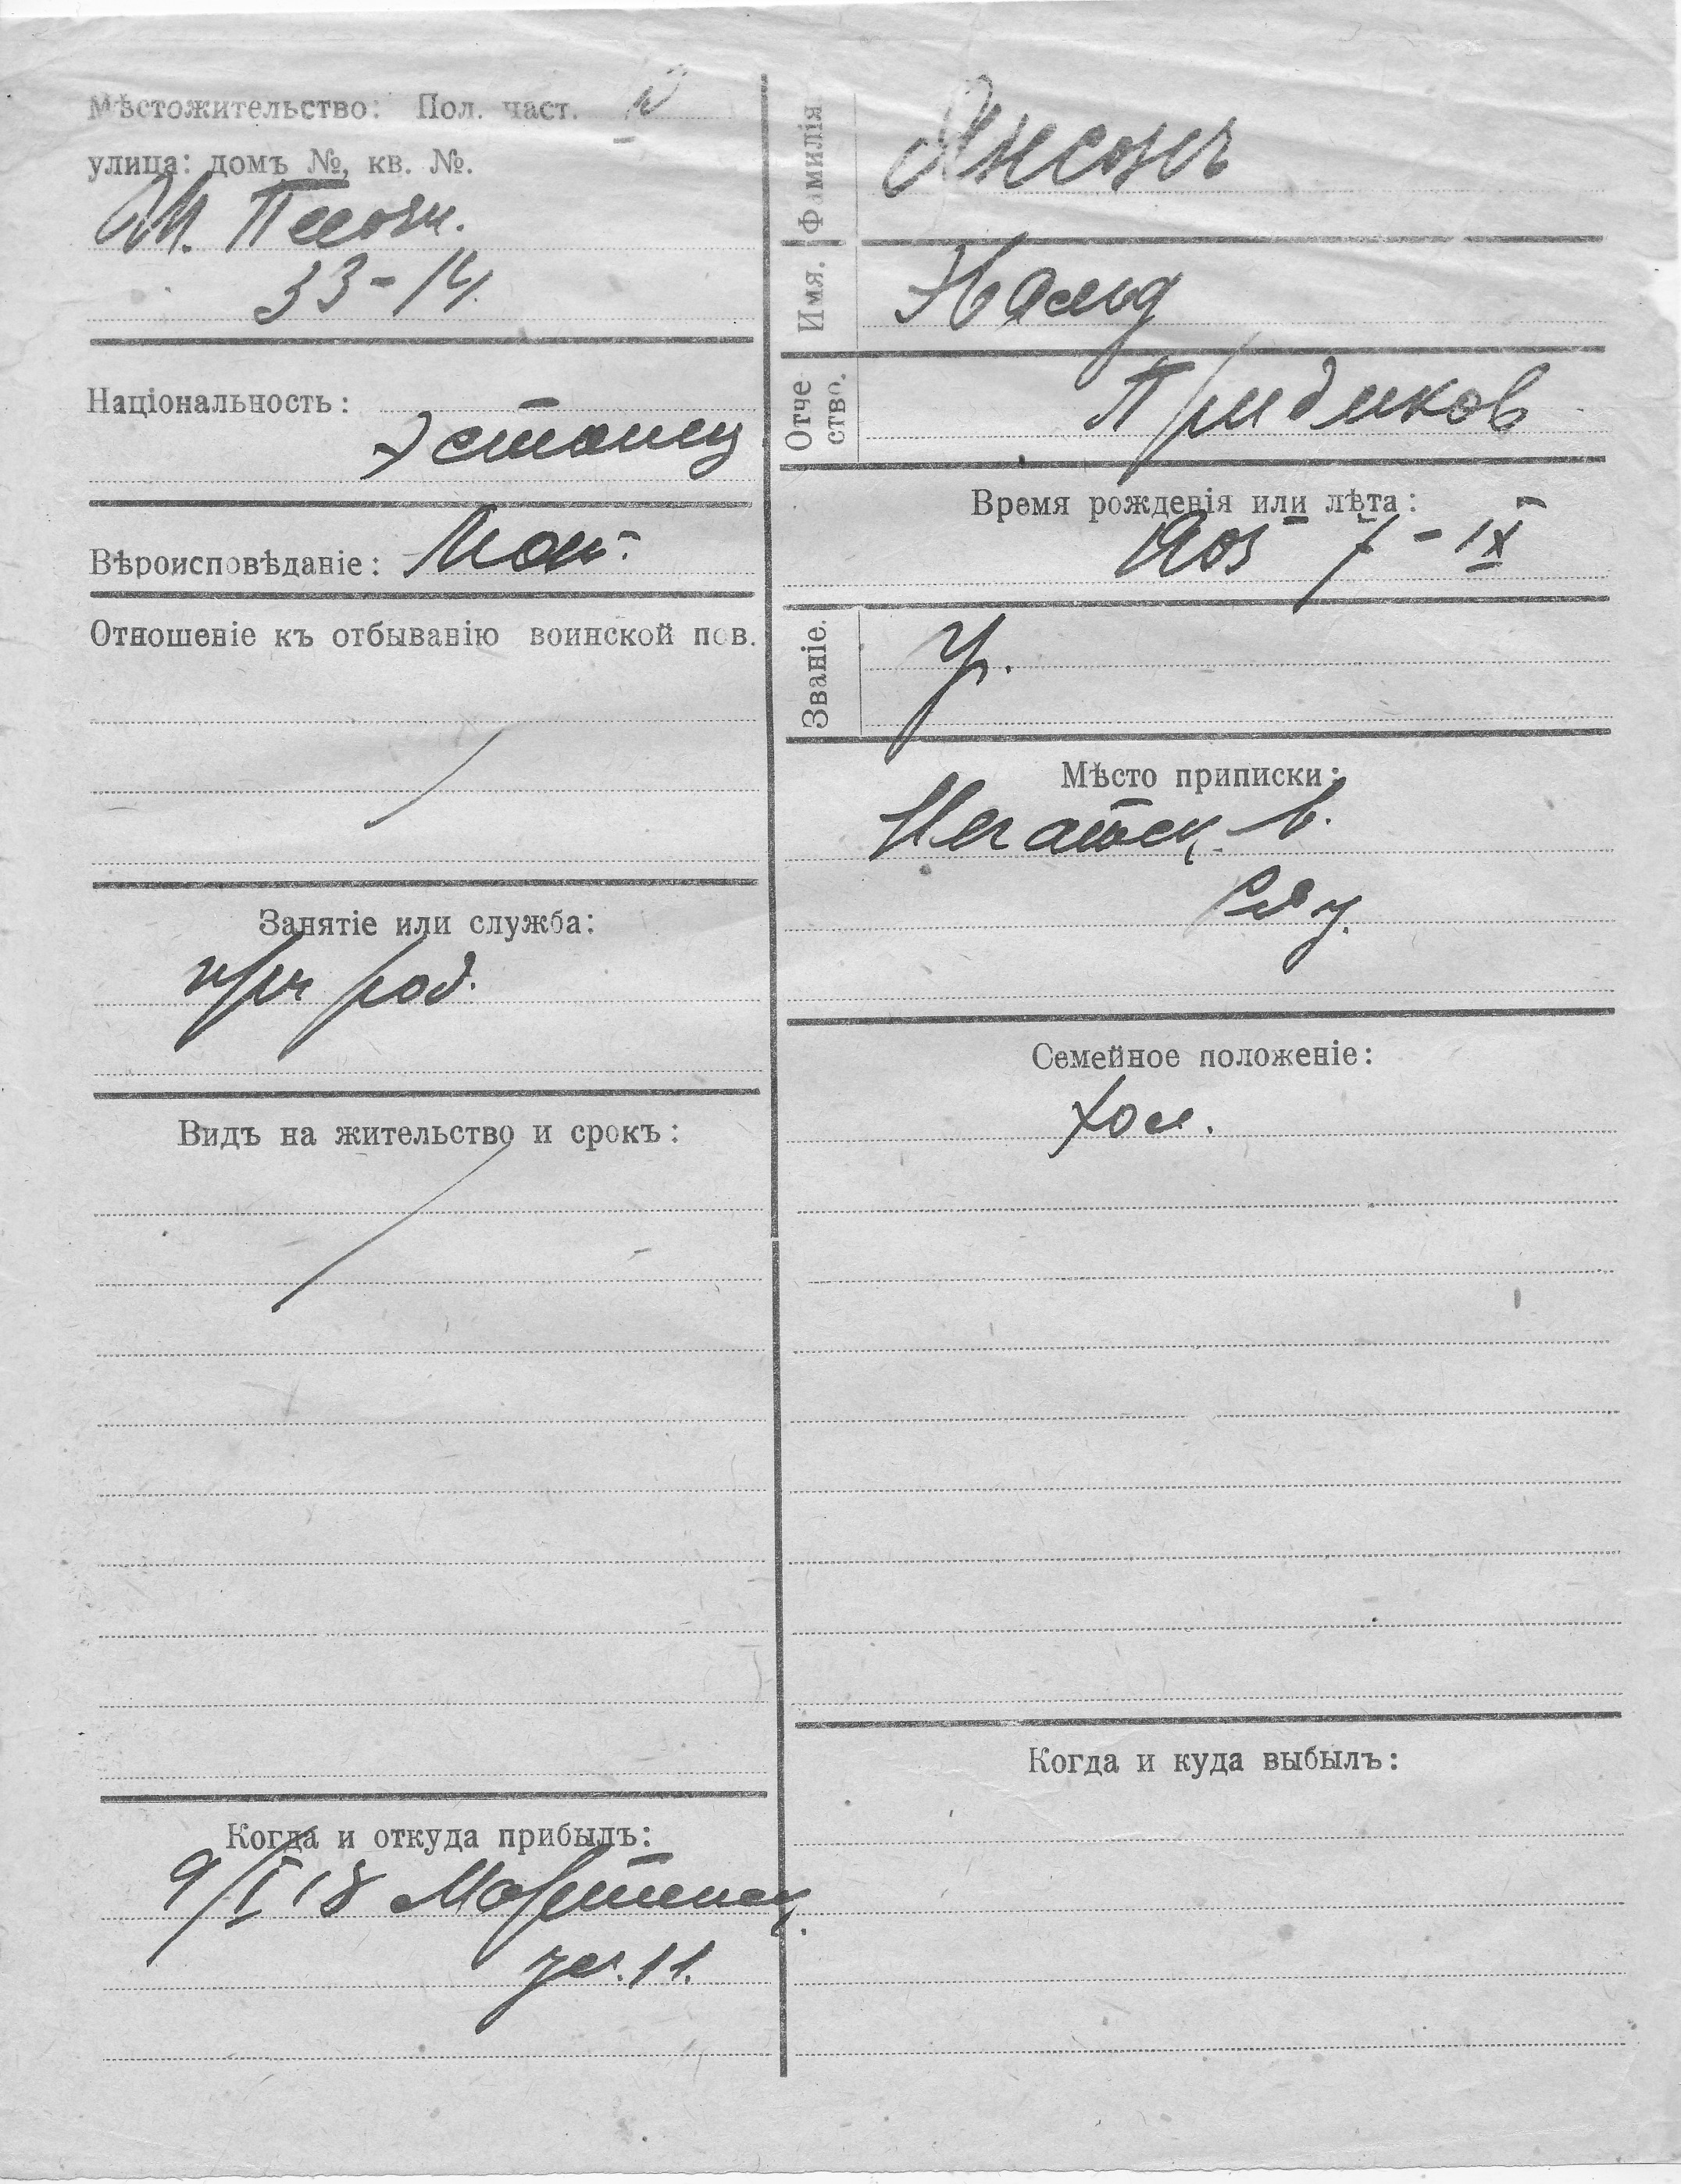 Мѣстожительство: Пол. част.
улица: домъ №, кв. №.
М. Песочн.
33-14.
Національность:
Эстонец
Вѣроисповѣданіе: Лют.
Отношеніе къ отбыванію воинской пов.
Занятіе или служба:
при род.
Видъ на жительство и срокъ:
Когда и откуда прибылъ:
9/I 18
ул. 11.
Фамилія
Янсонъ
Имя.
Отче
ство.
Придиков
Время рожденія или лѣта:
1905 7-IX
Званіе.
Кр.
Мѣсто приписки:
в.
у.
Семейное положеніе:
хол.
Когда и куда выбылъ: